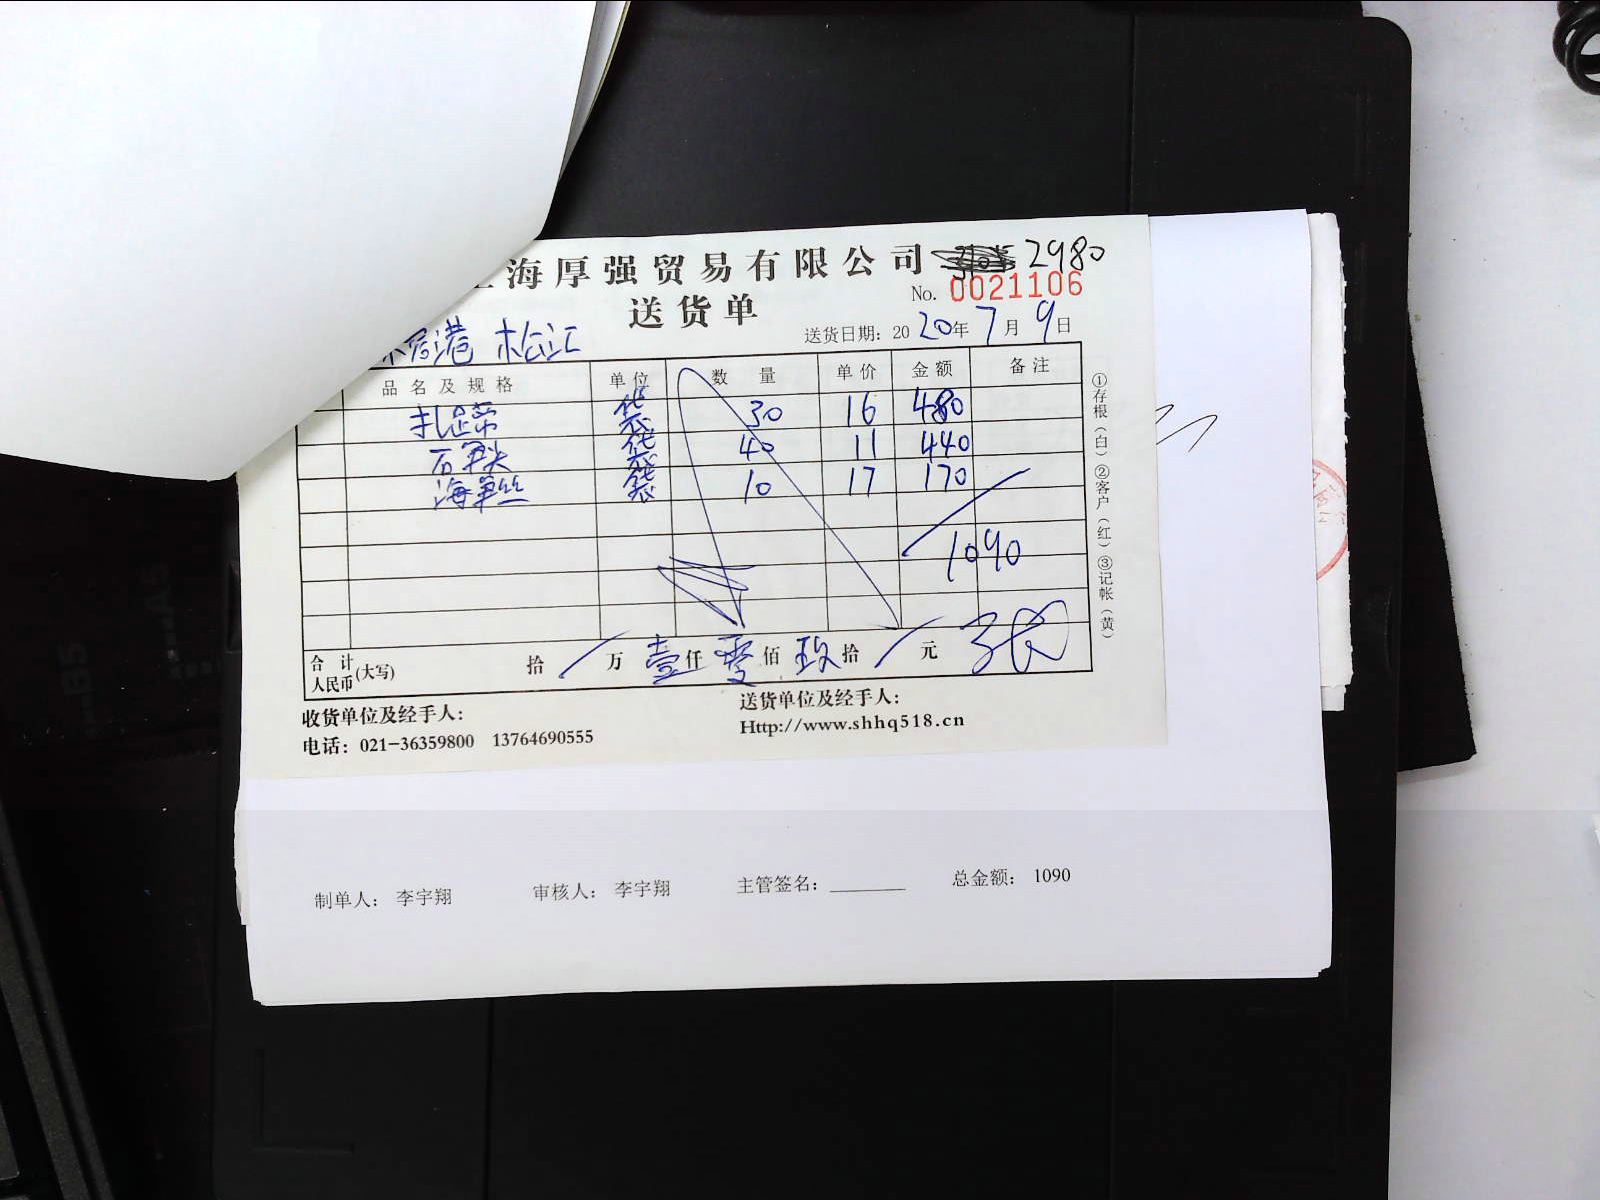 海厚强贸易有限公司 2980
No. 0021106
送货单
港 松江
送货日期: 2020年7月9日
品名及规格 单位 数量 单价 金额 备注
袋 30 16 480
袋 40 11 440
袋 10 17 170
1090
合计人民币(大写) 拾 万 壹仟 零佰 玖拾 元 张
①存根(白)②客户(红)③记帐(黄)
收货单位及经手人: 送货单位及经手人:
电话: 021-36359800 13764690555 Http://www.shhq518.cn
制单人: 李宇翔 审核人: 李宇翔 主管签名: ________ 总金额: 1090